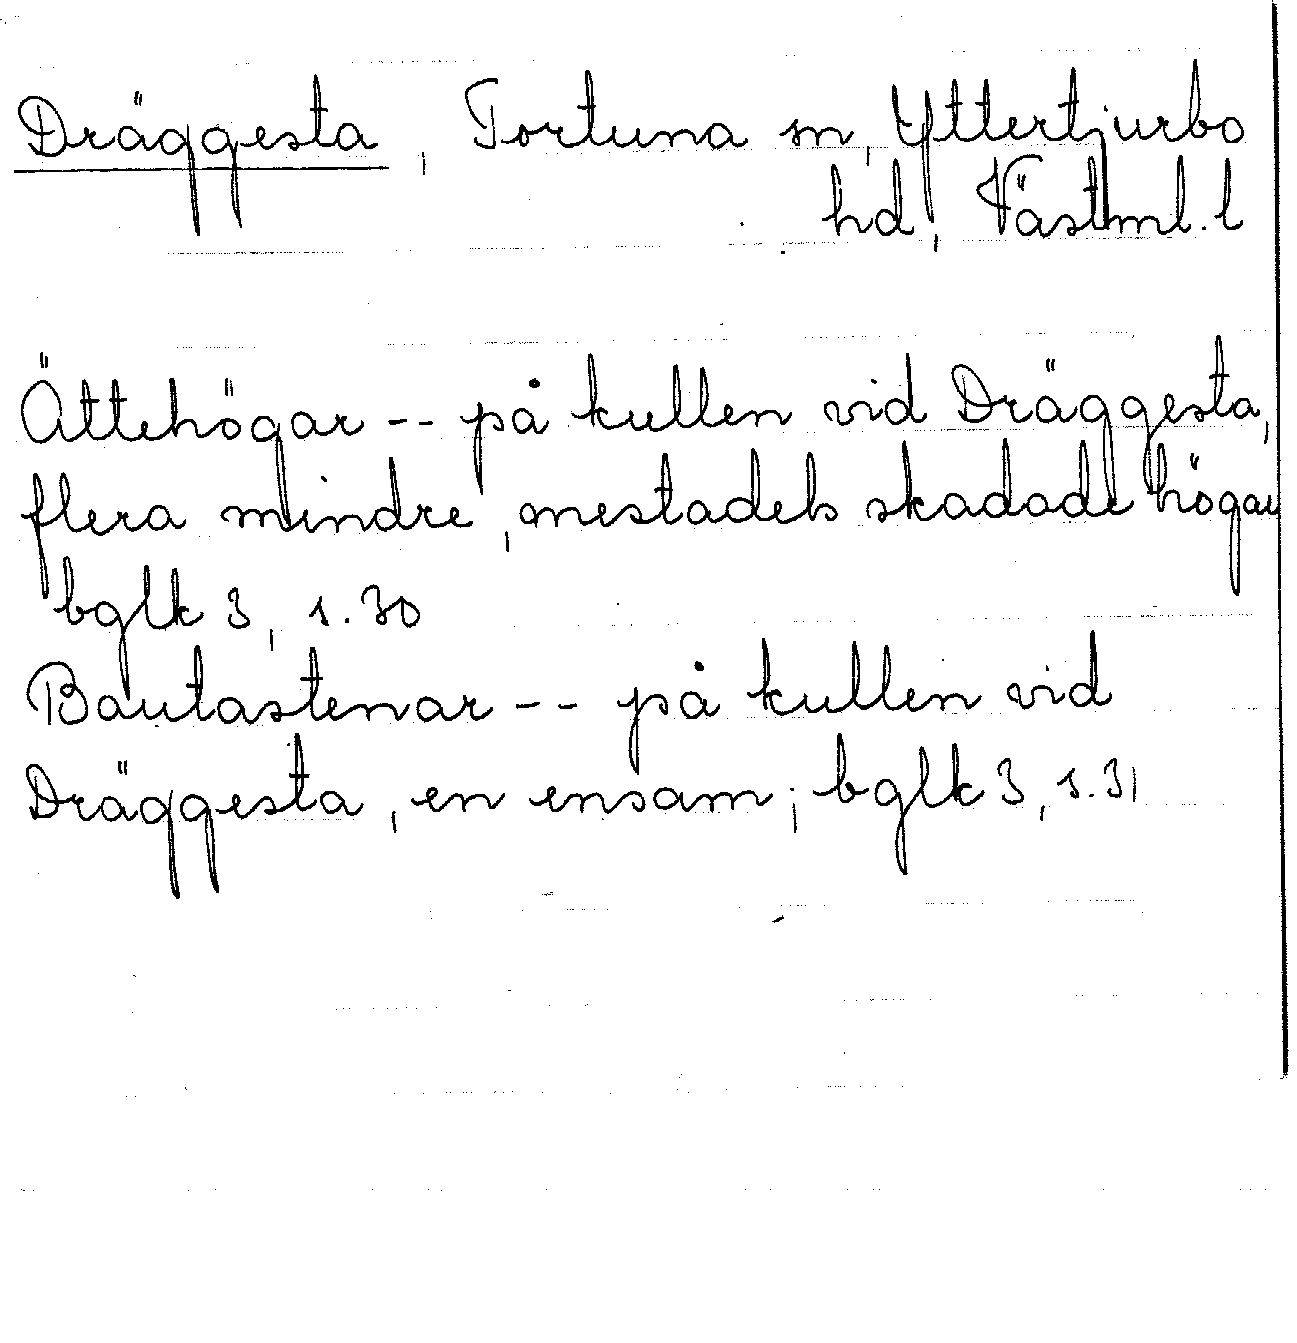 Dräggesta, Tortuna sn, Yttertjurbo
hd, Västml. l
Ättehögar -- på kullen vid Dräggesta,
flera mindre, mestadels skadade högar
bglk 3, s. 30
Bautastenar -- på kullen vid
Dräggesta, en ensam; bglk 3, s. 31